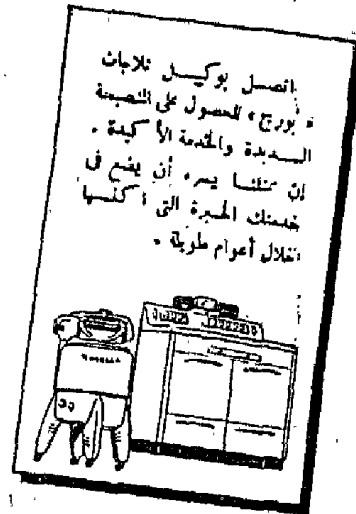 اتصل بوكيل ثلاجات
« نورج » للحصول على النصيحة
السديدة والخدمة الأكيدة .
إن ممثلنا يسره أن يضع في
خدمتك الخبرة التي اكتسبها
خلال أعوام طويلة .